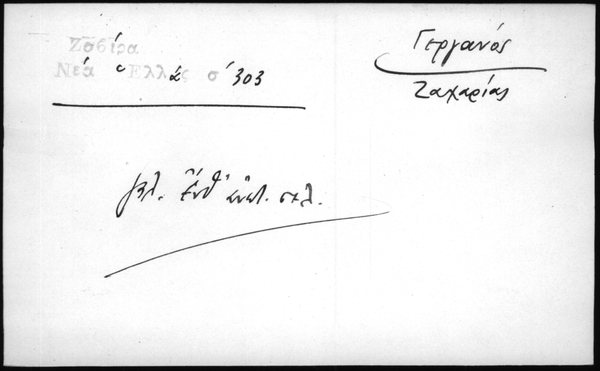 Ζαβίρα
Νέα Ἑλλάς σ. 303
Γεργανός
Ζαχαρίας
βλ. ἔνθ' ἀνωτ. σελ.